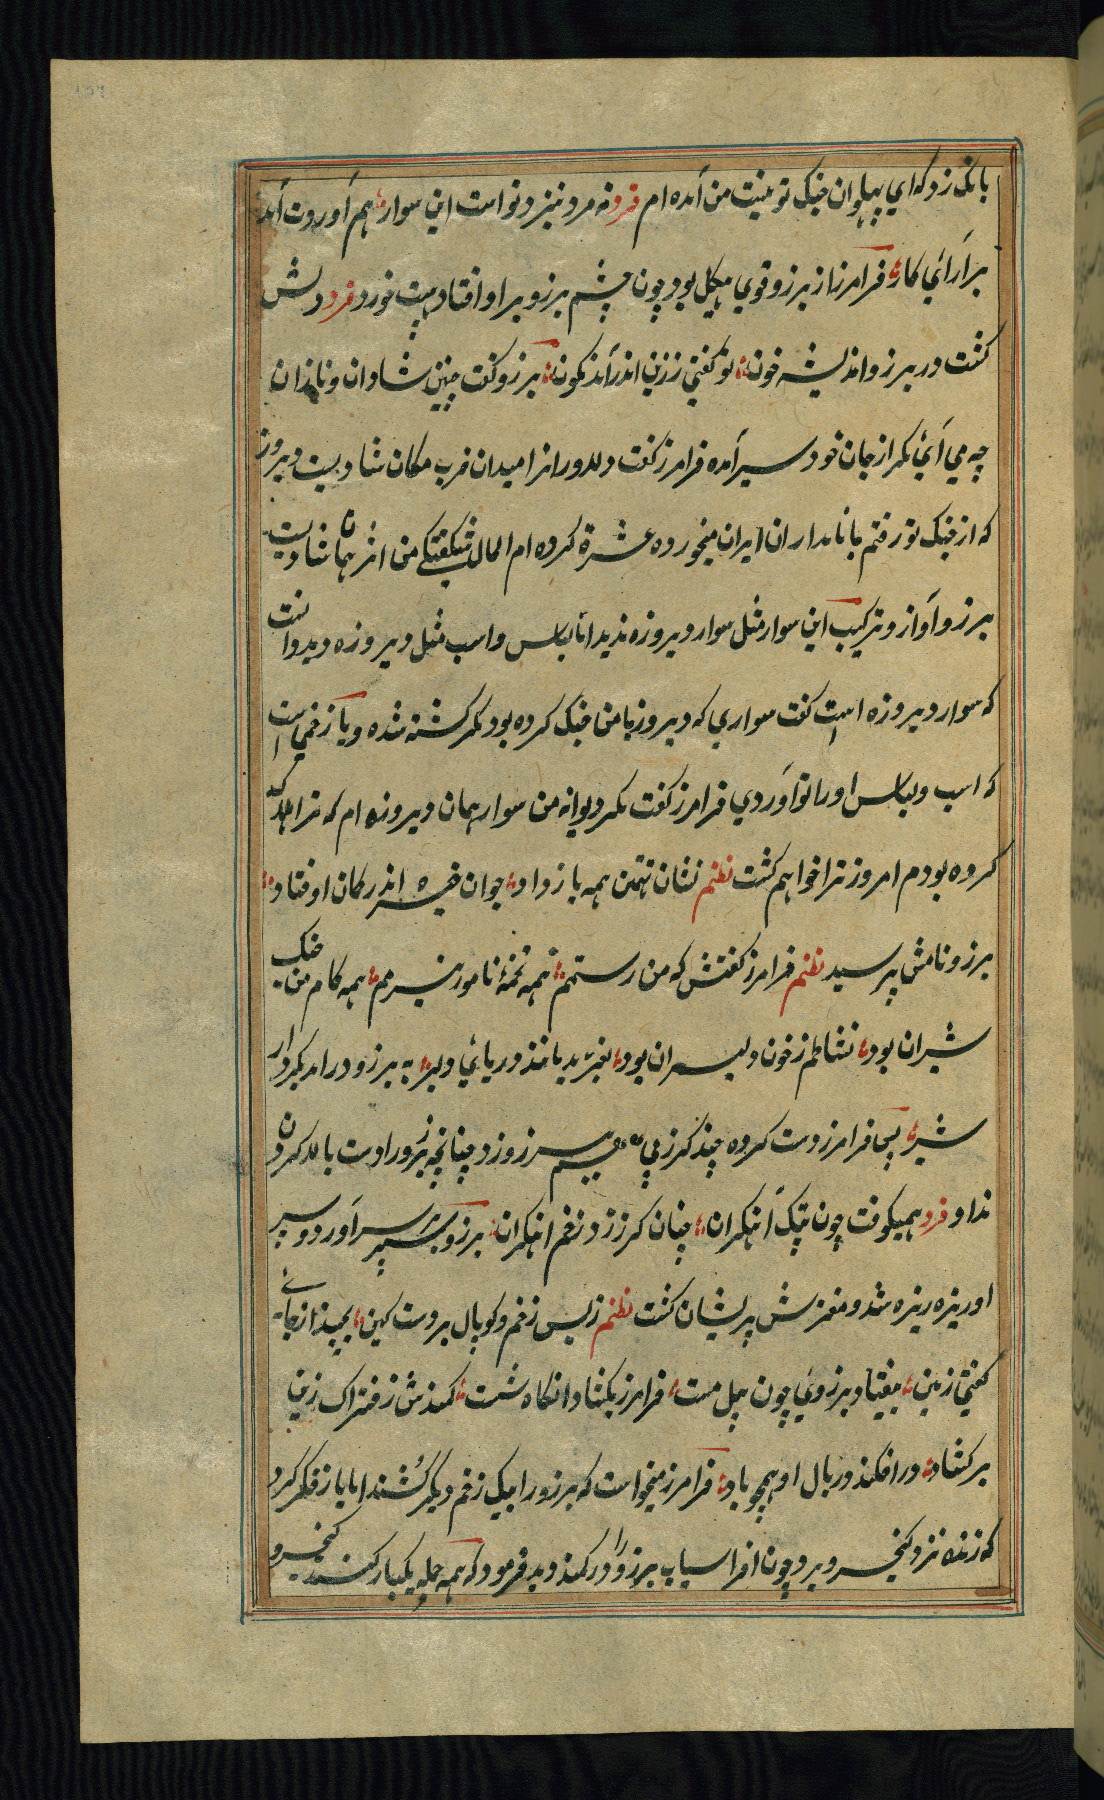 بانک زد که ای پهلوان جنک تو منیت من آمده ام فرد نه مرد نبرد تو است این سوار هم آوردت آمد
برآرای کار فرامرز از برزو قوی هیکل بود چون چشم برزو بر او افتاد هیبت خورد فرد دلش
کشت در برزو اندیشه خون تو کفتی ززین اندر آمد نکون برزو کفت چنین شادان و نازان
چه می آئی مکر از جان خود سیر آمده فرامرز کفت دلاورانرا میدان حرب مکان شادیست دیروز
که از جنک تو رفتم با نامداران ایران میخورده عشرة کرده ام الحال شکفتکی من از همان شادیست
برزو آواز و ترکیب این سوار مثل سوار دیروزه ندید اما لباس و اسب مثل دیروزه دید دانست
که سوار دیروزه است کفت سواری که دیروز با من جنک کرده بود مکر کشته شده و یا زخمی است
که اسب و لباس او را تو آوردی فرامرز کفت مکر دیوانه من سوار همان دیروزه ام که ترا
کرده بودم امروز ترا خواهم کشت نظم نشان تهمتن همه باز داد جوان خیره اندر کمان اوفتاد
برزو نامش پرسید نظم فرامرز کفتش که من رستمم همه تخمهٔ نامور نیرمم همه کام من جنک
شیران بود نشاطم ز خون دلیران بود بغرید مانند دریای دلیر به برزو در آمد بکردار
شیر پس فرامرز دست کرده چند کرز پی هم برزو زد چنانچه برزو را دست بالا کردن
نداد فرد همیکوفت چون پتک آهنکران چنان کرز زد زخم آهنکران برزو سپر بسر آورد و سپر
او ریزه ریزه شد و مغزش پریشان کشت نظم ز بس زخم و کوپال بر دست کین بجنبید از جای
کفتی زمین بیفتاد برزوی چون پیل مست فرامرز بکشاد آنکاه شست کمندش ز فتراک زین
برکشاد درافکند در یال او همچو باد فرامرز میخواست که برزو را بیک زخم دیکر کشد اما باز فکر کرد
که زنده نزد کیخسرو برد چون افراسیاب برزو را در کمند دید فرمود که همه حمله یکبار کنند کیخسرو